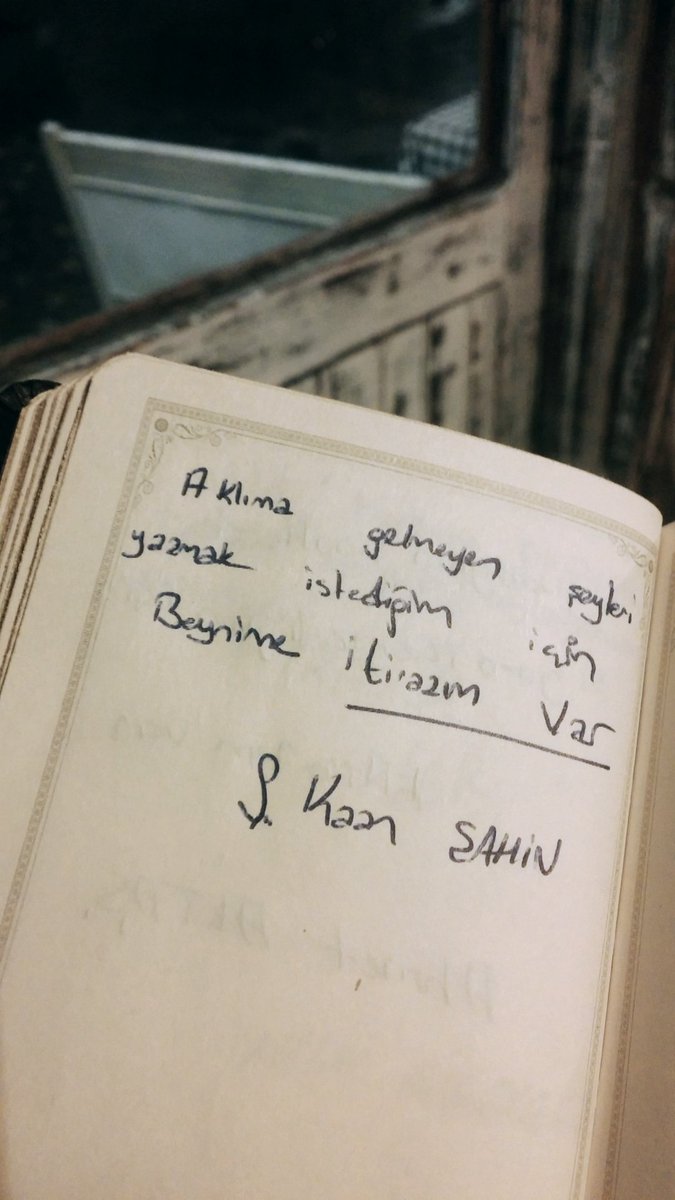 Aklıma gelmeyen şeyleri
yazmak istediğim için
Beynime itirazım Var
Ş. Kaan ŞAHİN